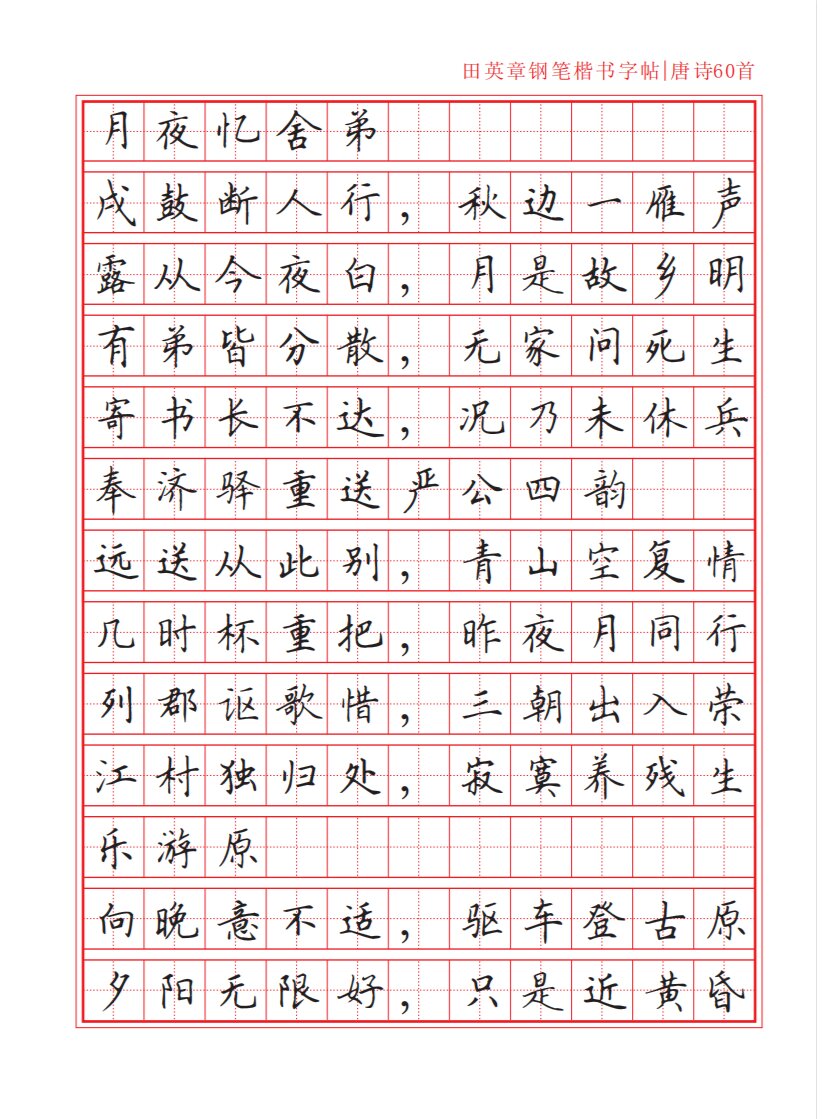 田英章钢笔楷书字帖|唐诗60首
月夜忆舍弟
戍鼓断人行，秋边一雁声
露从今夜白，月是故乡明
有弟皆分散，无家问死生
寄书长不达，况乃未休兵
奉济驿重送严公四韵
远送从此别，青山空复情
几时杯重把，昨夜月同行
列郡讴歌惜，三朝出入荣
江村独归处，寂寞养残生
乐游原
向晚意不适，驱车登古原
夕阳无限好，只是近黄昏